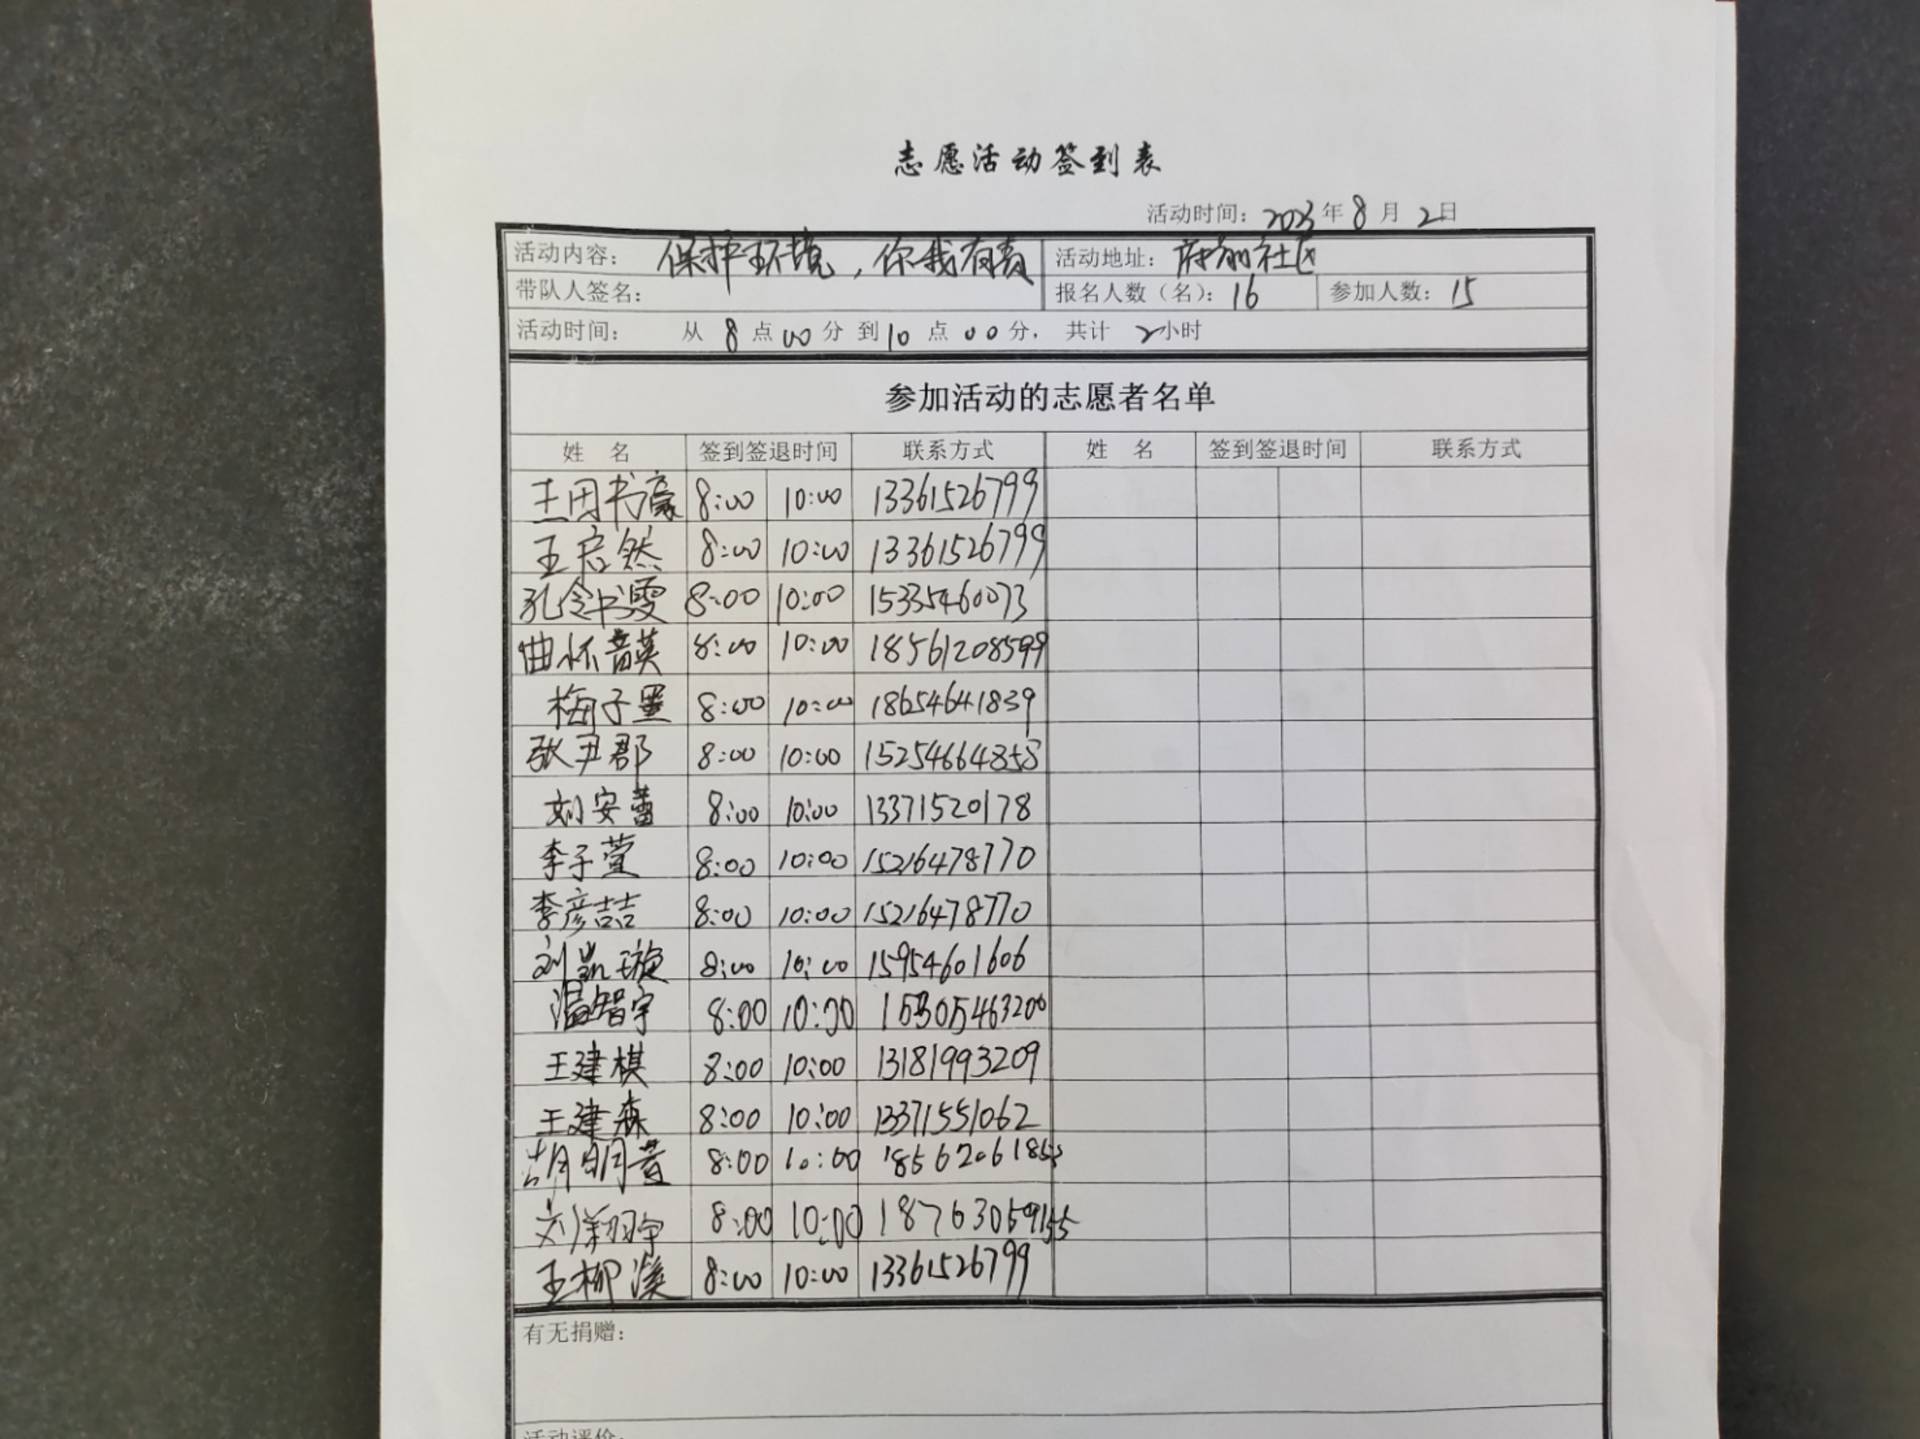 志愿活动签到表
活动时间：2023年8月2日
活动内容：保护环境，你我有责 活动地址：府前社区
带队人签名： 报名人数（名）：16 参加人数：15
活动时间： 从8点00分到10点00分，共计2小时
参加活动的志愿者名单
姓 名 签到签退时间 联系方式 姓 名 签到签退时间 联系方式
书豪 8:00 10:00 13361526799
王启然 8:00 10:00 13361526799
孔令书雯 8:00 10:00 15335460073
曲怀 8:00 10:00 18561208599
梅子墨 8:00 10:00 18654641839
张尹郡 8:00 10:00 15254664858
刘安蕾 8:00 10:00 13371520178
李子萱 8:00 10:00 15216478770
李彦喆 8:00 10:00 15216478770
刘凯璇 8:00 10:00 15954601606
温智宇 8:00 10:00 15305463200
王建棋 8:00 10:00 13181993209
王建森 8:00 10:00 13371551062
胡明萱 8:00 10:00
刘翔宇 8:00 10:00
王柳溪 8:00 10:00 13361526799
有无捐赠：
活动评价：